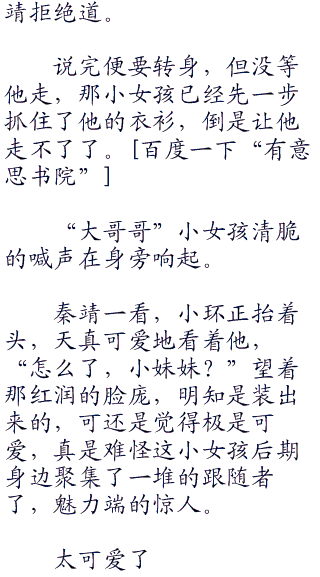 靖拒绝道。
说完便要转身，但没等
他走，那小女孩已经先一步
抓住了他的衣衫，倒是让他
走不了了。[百度一下“有意
思书院”]
“大哥哥”小女孩清脆
的喊声在身旁响起。
秦靖一看，小环正抬着
头，天真可爱地看着他，
“怎么了，小妹妹？”望着
那红润的脸庞，明知是装出
来的，可还是觉得极是可
爱，真是难怪这小女孩后期
身边聚集了一堆的跟随者
了，魅力端的惊人。
太可爱了